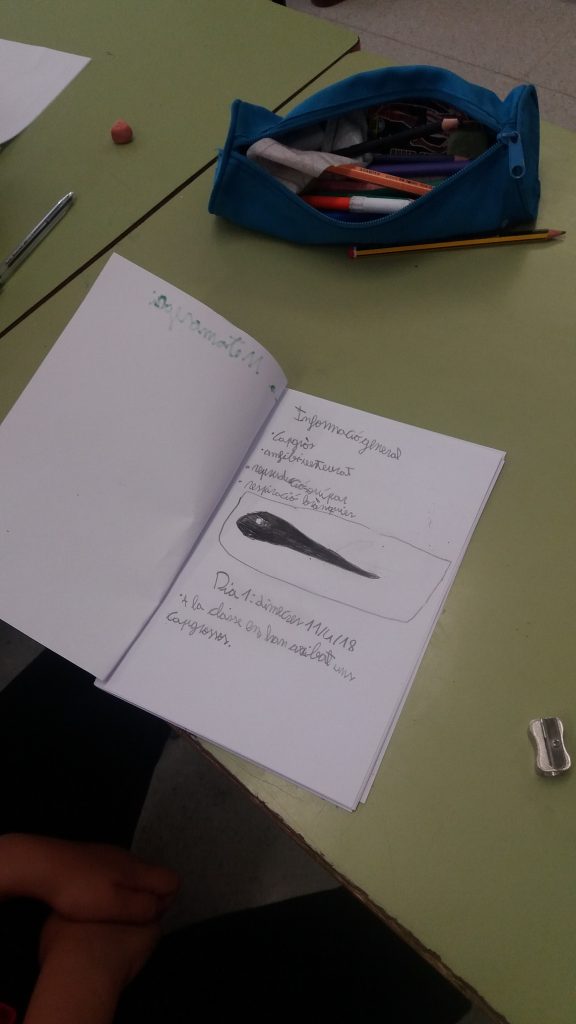 Informació general
· Capgròs
· amfibi vertebrat
· reproducció ovípar
· respiració
Dia 1: dimecres 11/4/18
· A la classe ens han arribat uns
Capgrossos.